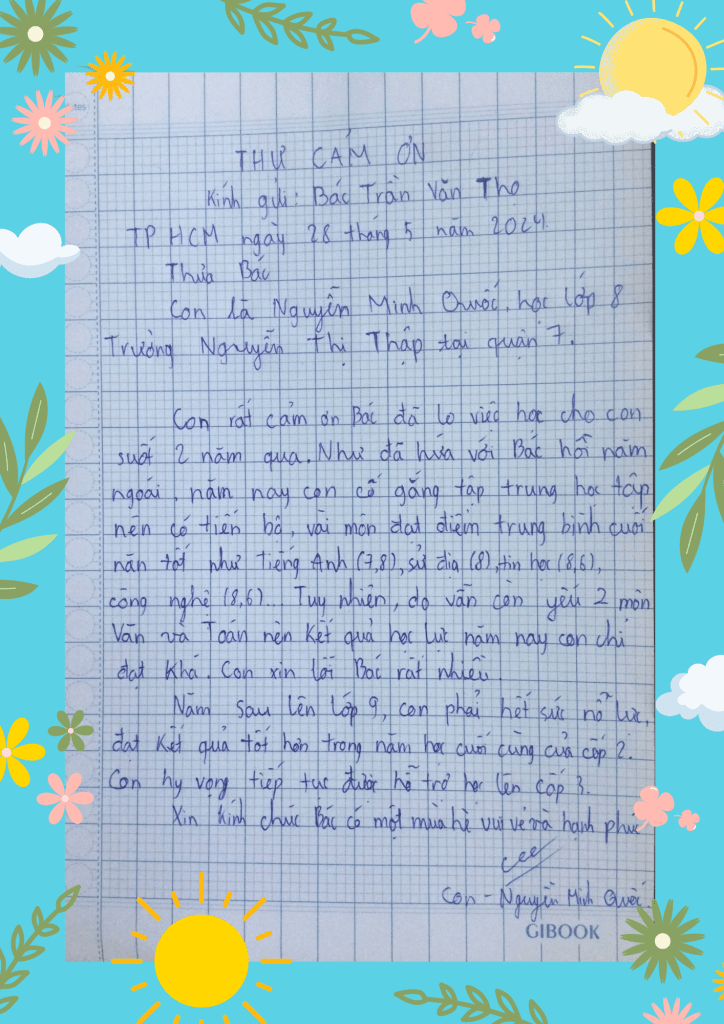 THƯ CẢM ƠN
Kính gửi: Bác Trần Văn Thọ
TP HCM ngày 28 tháng 5 năm 2024
Thưa Bác
Con là Nguyễn Minh Quốc, học lớp 8
Trường Nguyễn Thị Thập tại quận 7.
Con rất cảm ơn Bác đã lo việc học cho con
suốt 2 năm qua. Như đã hứa với Bác hồi năm
ngoái, năm nay con cố gắng tập trung học tập
nên có tiến bộ, vài môn đạt điểm trung bình cuối
năn tốt như Tiếng Anh (7,8), sử địa (8), tin học (8,6),
công nghệ (8,6)... Tuy nhiên, do vẫn còn yếu 2 môn
Văn và Toán nên kết quả học lực năm nay con chỉ
đạt Khá. Con xin lỗi Bác rất nhiều.
Năm sau lên lớp 9, con phải hết sức nỗ lực,
đạt kết quả tốt hơn trong năm học cuối cùng của cấp 2.
Con hy vọng tiếp tục được hỗ trợ học lên cấp 3.
Xin kính chúc Bác có một mùa hè vui vẻ và hạnh phúc
Con - Nguyễn Minh Quốc.
GIBOOK